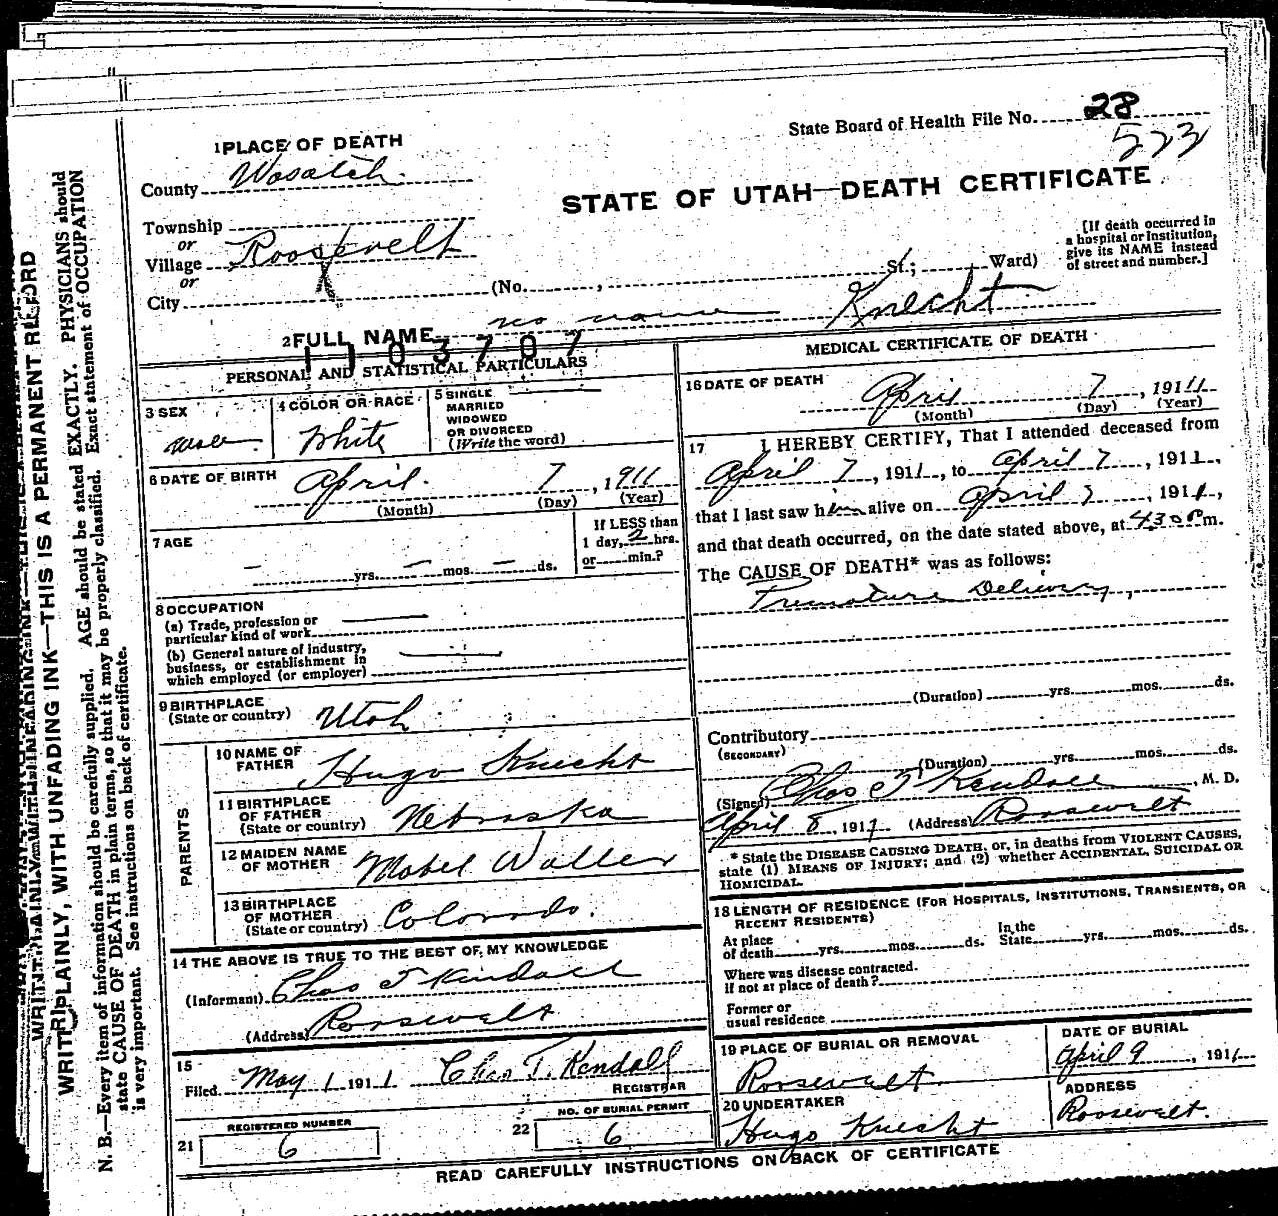 State Board of Health File No. 28
523
1 PLACE OF DEATH
County Wasatch.
STATE OF UTAH—DEATH CERTIFICATE
Township
or
Village Roosevelt
or
City
(No. , St.; Ward)
[If death occurred in
a hospital or institution,
give its NAME instead
of street and number.]
2 FULL NAME no name Knecht
1103707
PERSONAL AND STATISTICAL PARTICULARS
3 SEX
male
4 COLOR OR RACE
White
5 SINGLE
MARRIED
WIDOWED
OR DIVORCED
(Write the word)
6 DATE OF BIRTH April. 7, 1911
(Month) (Day) (Year)
7 AGE
— yrs. — mos. — ds.
If LESS than
1 day, 2 hrs.
or min.?
8 OCCUPATION
(a) Trade, profession or
particular kind of work
(b) General nature of industry,
business, or establishment in
which employed (or employer)
9 BIRTHPLACE
(State or country) Utah
PARENTS
10 NAME OF
FATHER Hugo Knecht
11 BIRTHPLACE
OF FATHER
(State or country) Nebraska
12 MAIDEN NAME
OF MOTHER Mabel Waller
13 BIRTHPLACE
OF MOTHER
(State or country) Colorado.
14 THE ABOVE IS TRUE TO THE BEST OF MY KNOWLEDGE
(Informant) Chas T Kendall
(Address) Roosevelt
15
Filed May 1 1911 Chas T. Kendall
REGISTRAR
21 REGISTERED NUMBER
6
22 NO. OF BURIAL PERMIT
6
MEDICAL CERTIFICATE OF DEATH
16 DATE OF DEATH
April 7, 1911
(Month) (Day) (Year)
17 I HEREBY CERTIFY, That I attended deceased from
April 7, 1911, to April 7, 1911,
that I last saw him alive on April 7, 1911,
and that death occurred, on the date stated above, at 430 P m.
The CAUSE OF DEATH* was as follows:
Premature Delivery,
(Duration) yrs. mos. ds.
Contributory
(SECONDARY)
(Duration) yrs. mos. ds.
(Signed) Chas T Kendall, M. D.
April 8, 1911 (Address) Roosevelt
* State the DISEASE CAUSING DEATH, or, in deaths from VIOLENT CAUSES,
state (1) MEANS OF INJURY; and (2) whether ACCIDENTAL, SUICIDAL OR
HOMICIDAL.
18 LENGTH OF RESIDENCE (FOR HOSPITALS, INSTITUTIONS, TRANSIENTS, OR
RECENT RESIDENTS)
At place
of death yrs. mos. ds.
In the
State yrs. mos. ds.
Where was disease contracted.
if not at place of death?
Former or
usual residence
19 PLACE OF BURIAL OR REMOVAL
Roosevelt.
DATE OF BURIAL
April 9, 1911
20 UNDERTAKER
Hugo Knecht
ADDRESS
Roosevelt.
READ CAREFULLY INSTRUCTIONS ON BACK OF CERTIFICATE
WRITE PLAINLY, WITH UNFADING INK—THIS IS A PERMANENT RECORD
N. B.—Every item of information should be carefully supplied. AGE should be stated EXACTLY. PHYSICIANS should
state CAUSE OF DEATH in plain terms, so that it may be properly classified. Exact statement of OCCUPATION
is very important. See instructions on back of certificate.